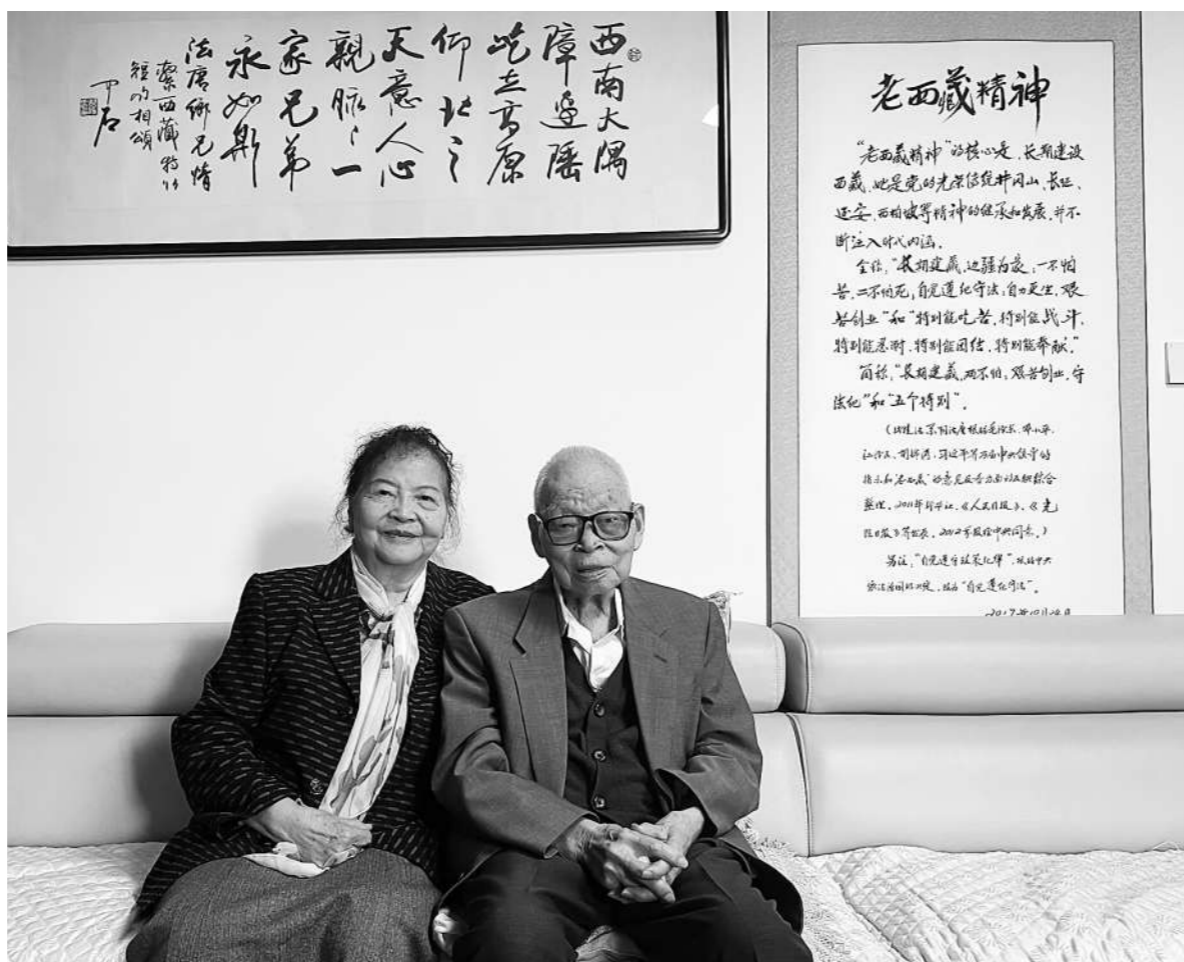 西南大隅
障邊
屹立高原
仰北
天意人心
親脉〻一
家兄弟
永如斯
法唐鄉兄情
繫西藏特以
短吟相頌
老西藏精神
“老西藏精神”的核心是，长期建设
西藏，她是党的光荣传统井冈山、长征、
延安、西柏坡等精神的继承和发展，并不
断注入时代内涵。
全称：“长期建藏，边疆为家；一不怕
苦，二不怕死；自觉遵纪守法；自力更生，艰
苦创业”和“特别能吃苦，特别能战斗，
特别能忍耐，特别能团结，特别能奉献。”
简称：“长期建藏，两不怕，艰苦创业，守
法纪”和“五个特别”。
法唐根据毛泽东、邓小平、
江泽民、胡锦涛、习近平等历届中央领导的
指示和“老西藏”的意见及各方面的
整理。2011年新华社、《人民日报》、《光
明日报》等发表。2012年报经中央同意。）
另注：“自觉遵守政策纪律”，根据中央
依法治国的，改为“自觉遵纪守法”。
2017年10月28日